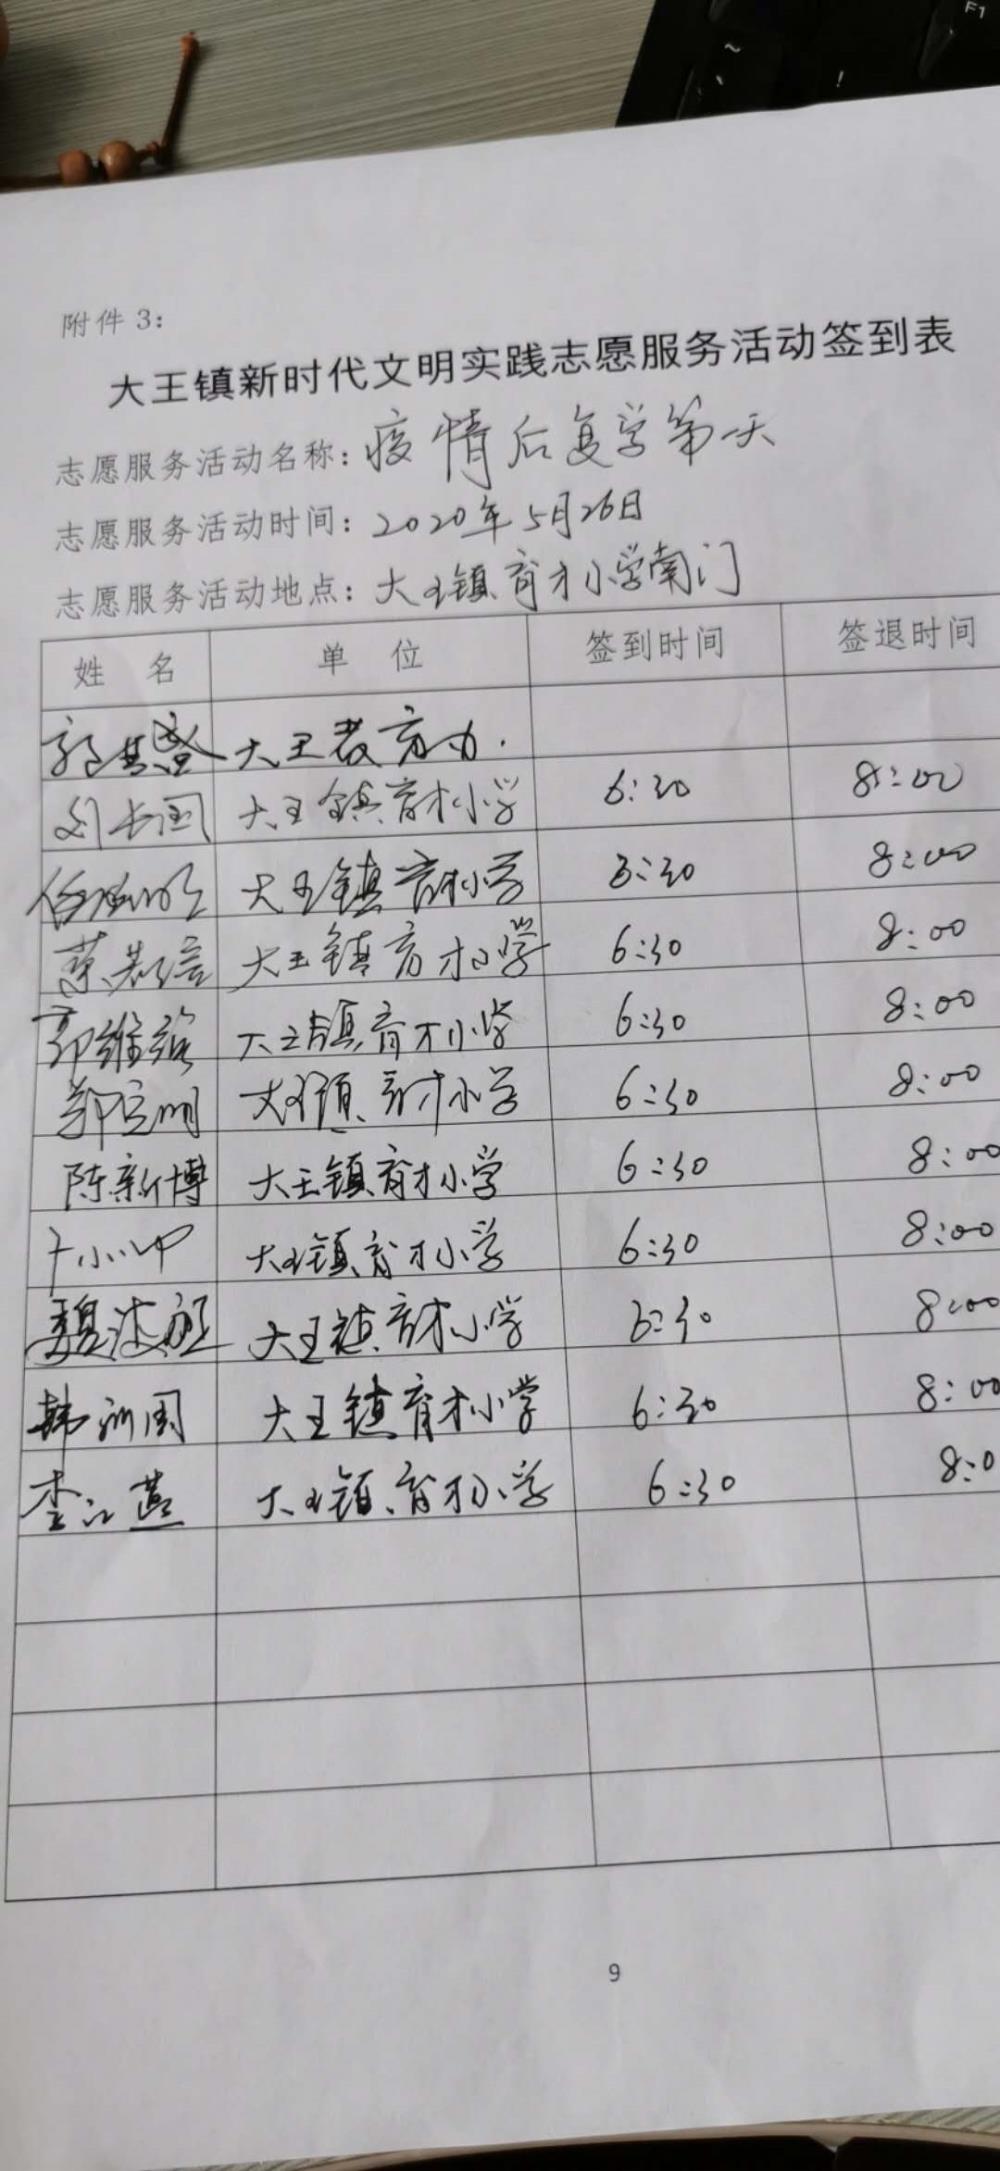 附件 3:
大王镇新时代文明实践志愿服务活动签到表
志愿服务活动名称: 疫情后复学第一天
志愿服务活动时间: 2020年5月26日
志愿服务活动地点: 大王镇育才小学南门
姓 名 单 位 签到时间 签退时间
大王教育办.
大王镇育才小学 6:30 8:00
大王镇育才小学 6:30 8:00
大王镇育才小学 6:30 8:00
大王镇育才小学 6:30 8:00
大王镇育才小学 6:30 8:00
陈新博 大王镇育才小学 6:30 8:00
大王镇育才小学 6:30 8:00
大王镇育才小学 6:30 8:00
大王镇育才小学 6:30 8:00
大王镇育才小学 6:30 8:0
9